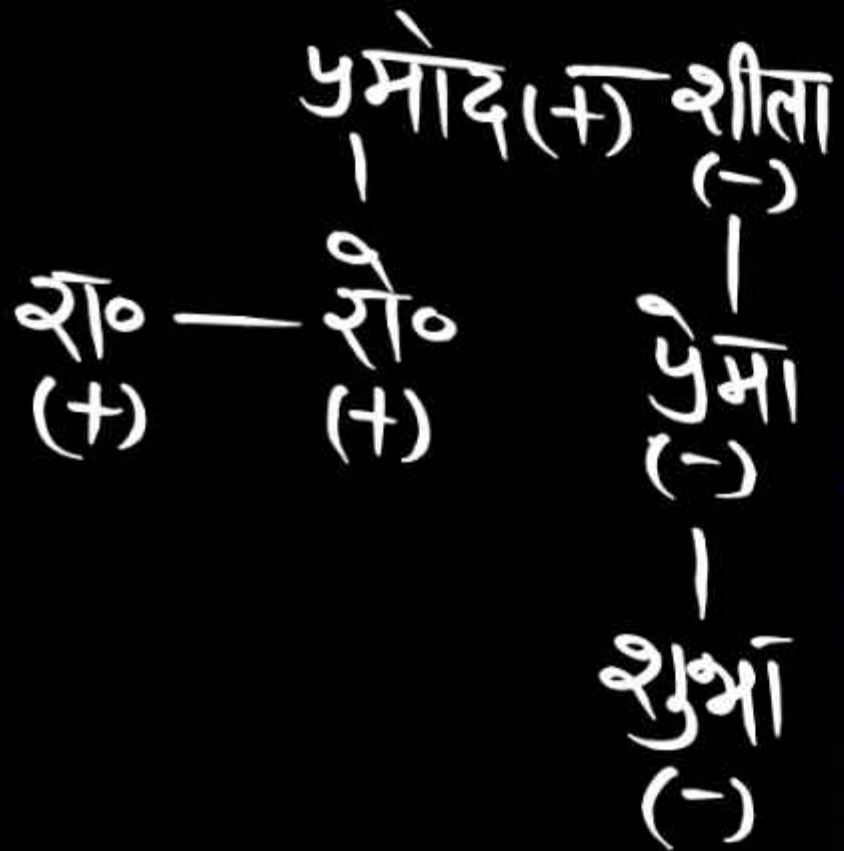 प्रमोद (+) — शीला
(-)
रा० — रो०
(+) (+)
प्रेमा
(-)
शुभा
(-)